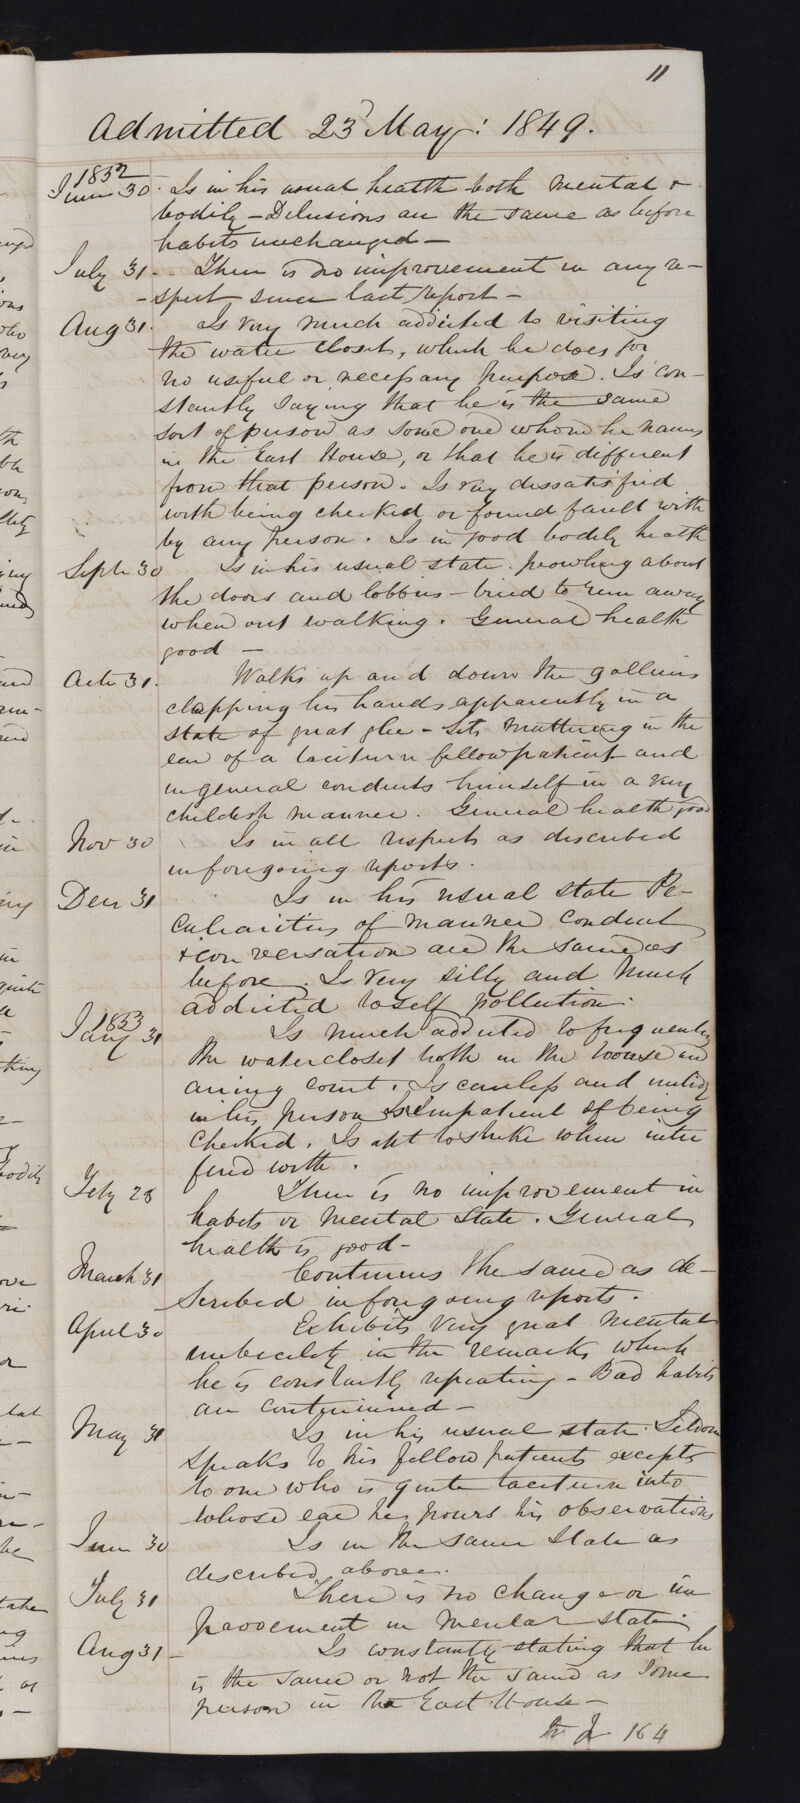 11
Admitted 23d May: 1849.
1852
June 30. Is in his usual health both mental &
bodily - Delusions are the same as before
habits unchanged -
July 31 - There is no improvement in any re-
-spect since last report -
Aug 31. Is very much addicted to visiting
the water closets, which he does for
no useful or necessary purpose. Is con-
stantly saying that he is the same
sort of person as some one whom he names
in the East House, or that he is different
from that person. Is very dissatisfied
with being checked or found fault with
by any person. Is in good bodily health
Septr 30 Is in his usual state. prowling about
the doors and lobbies - tried to run away
when out walking. General health
good -
Octr 31. Walks up and down the galleries
clapping his hands apparently in a
state of great glee - Sits muttering in the
ear of a taciturn fellow patient and
in general conducts himself in a very
childish manner. General health good
Nov 30 Is in all respects as described
in foregoing reports.
Decr 31 Is in his usual state Pe-
culiarities of manner conduct
& conversation are the same as
before. Is very silly and much
addicted to self pollution.
1853
Jany 31 Is much addicted to frequenting
the watercloset both in the house and
airing court. Is careless and untidy
in his person Is impatient of being
checked. Is apt to strike when inter
fered with.
Feby 28 There is no improvement in
habits or mental State. General
health is good -
March 31 Continues the same as de-
scribed in foregoing reports.
April 30 Exhibits very great mental
imbecility in the remarks which
he is constantly repeating - Bad habits
are continued -
May 31 Is in his usual state. Seldom
speaks to his fellow patients except
to one who is quite taciturn into
whose ear he pours his observations
June 30 Is in the same state as
described above.
July 31 There is no change or im
provement in mental state
Aug 31 - Is constantly stating that he
is the same or not the same as some
person in the East House -
164